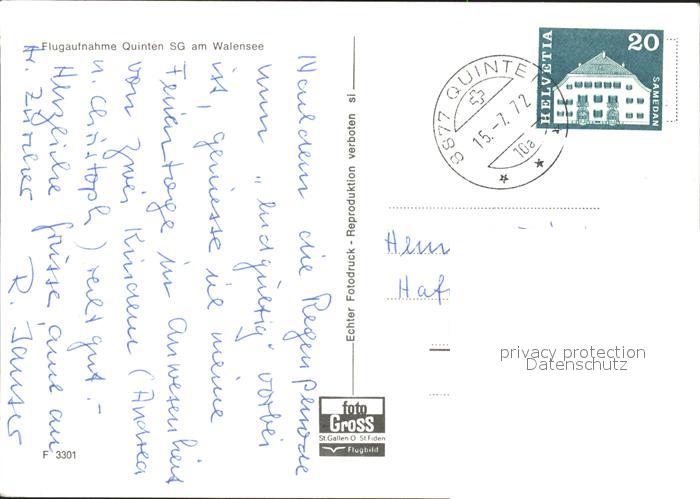 Flugaufnahme Quinten SG am Walensee
Nachdem die Regenperiode
nun "endgültig" vorbei
ist, geniesse ich meine
Ferientage in Anwesenheit
von zwei Kindern (Andrea
u. Christoph) recht gut.-
Herzliche Grüsse, auch an
Hr. Zürcher R.
F 3301
Echter Fotodruck - Reproduktion verboten si
foto
GROSS
St.Gallen O St.Fiden
Flugbild
8877 QUINTE
15.-7.72
10a
HELVETIA
20
SAMEDAN
Herrn
Haf
privacy protection
Datenschutz